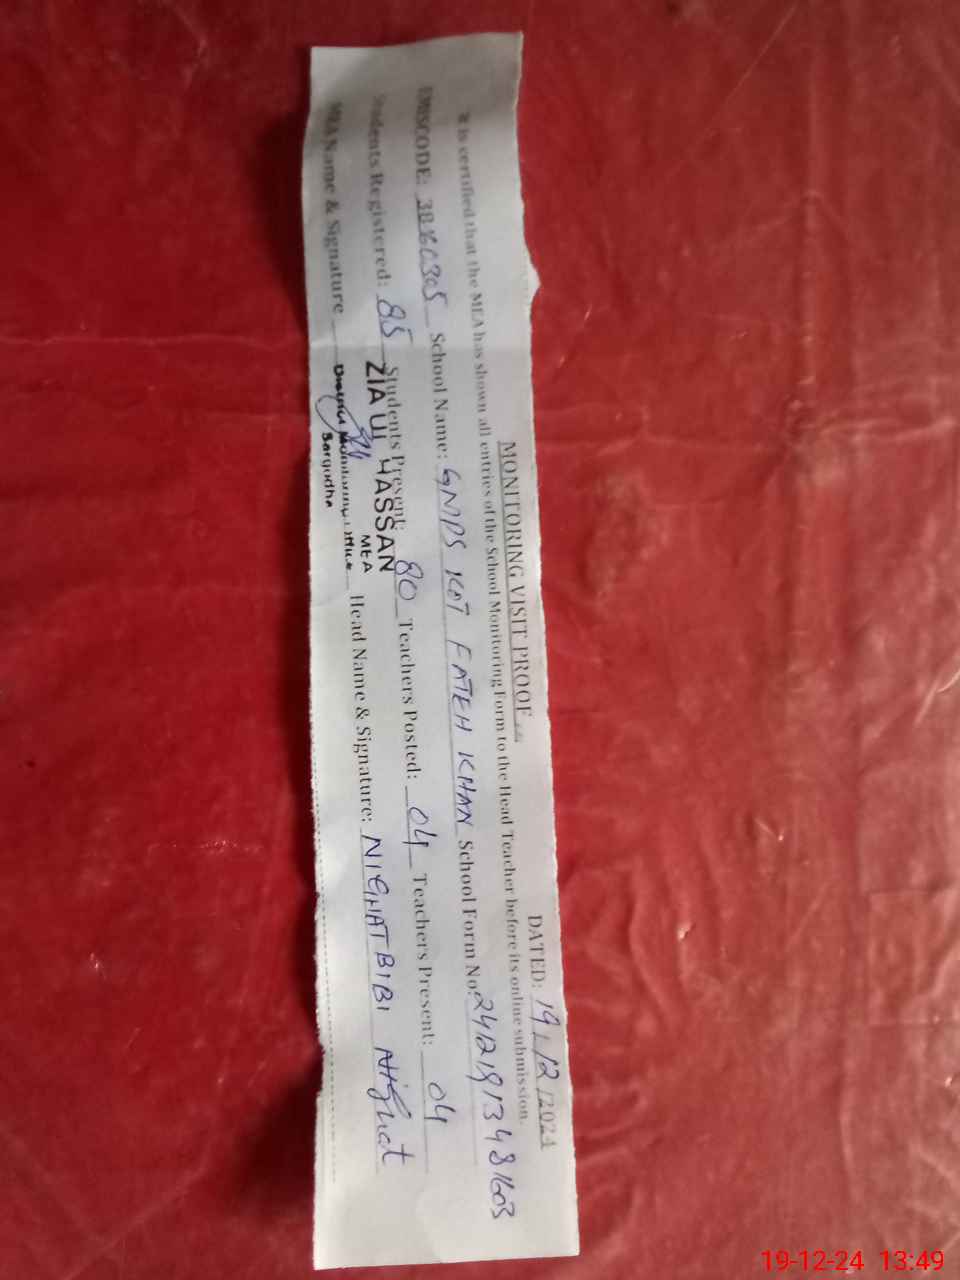 MONITORING VISIT PROOF
DATED: 19/12/2024
It is certified that the MEA has shown all entries of the School Monitoring Form to the Head Teacher before its online submission.
EMISCODE: 38160305 School Name: GMPS KOT FATEH KHAN School Form No: 24121913481603
Students Registered: 85 Students Present: 80 Teachers Posted: 04 Teachers Present: 04
ZIA UL HASSAN
MEA
MEA Name & Signature Head Name & Signature: NIGHAT BIBI Nighat
District Monitoring Office
Sargodha
19-12-24 13:49